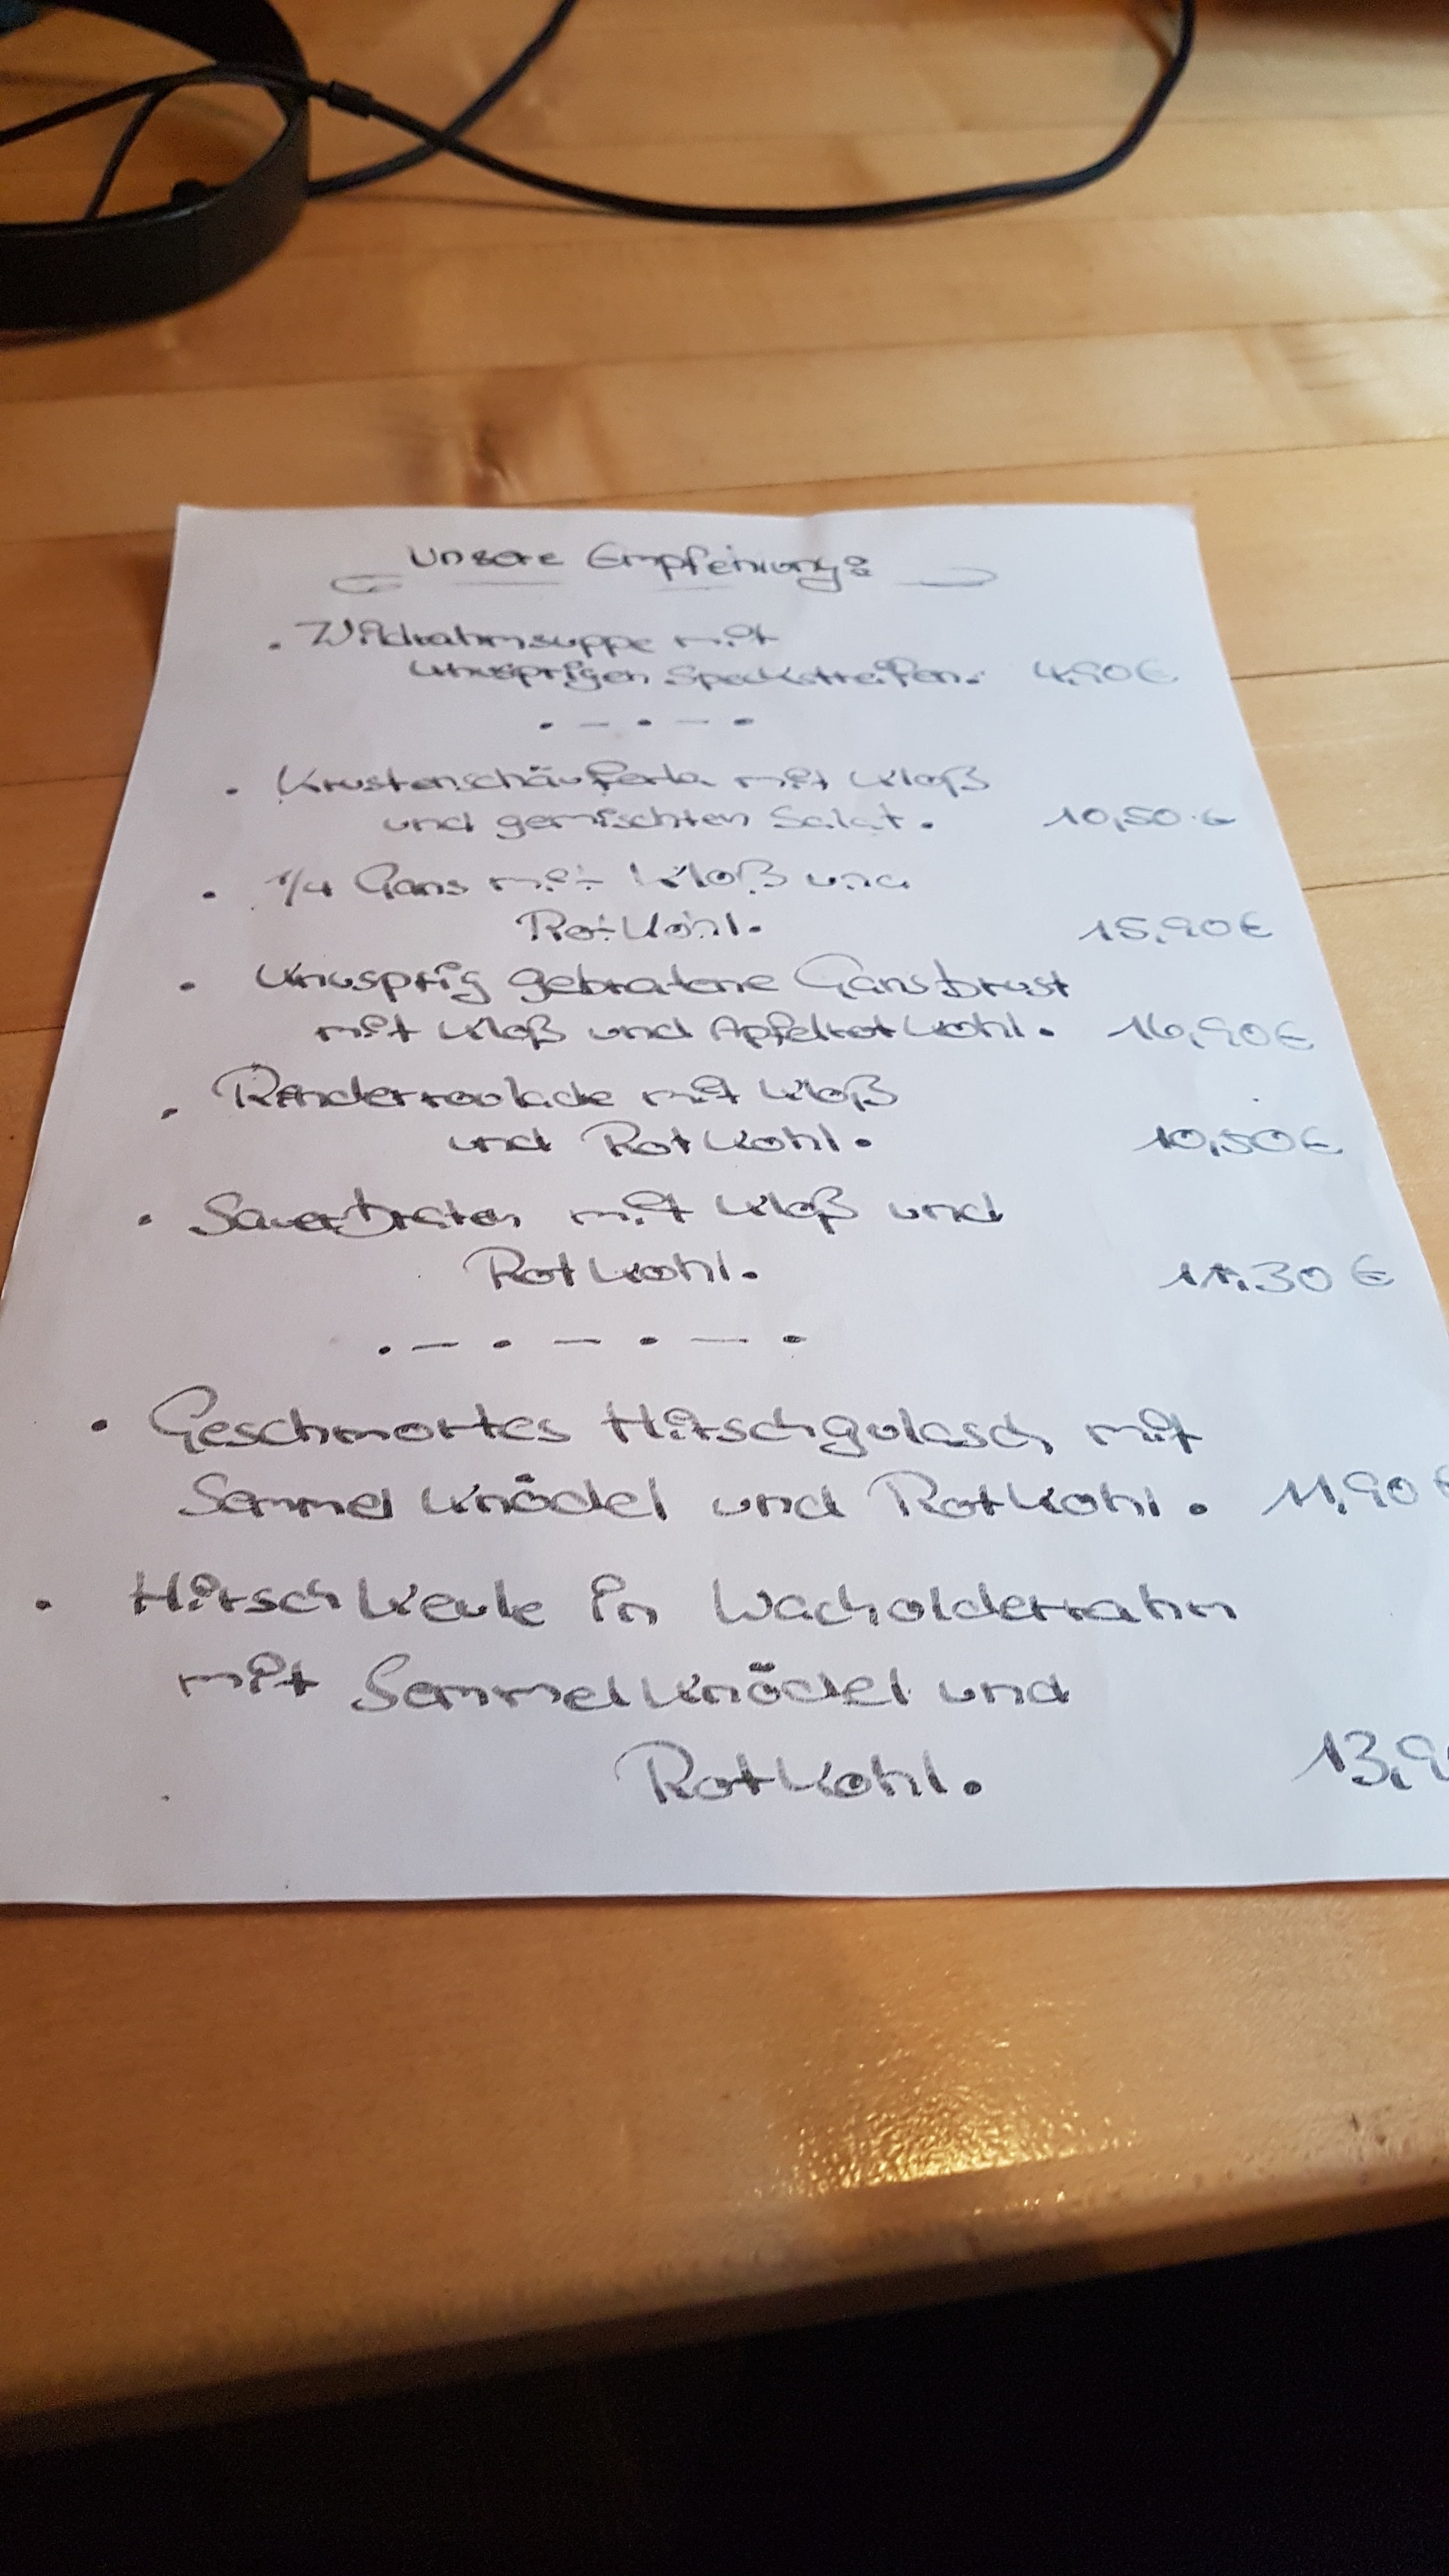 Unsere Empfehlung:
. Wildrahmsuppe mit
knusprigen Speckstreifen. 4,90€
. - . - .
. Krustenschäuferla mit Kloß
und gemischten Salat. 10,50 €
. 1/4 Gans mit Kloß und
Rotkohl. 15,90€
. Knusprig gebratene Gansbrust
mit Kloß und Apfelrotkohl. 16,90€
. Rinderroulade mit Kloß
und Rotkohl. 10,50€
. Sauerbraten mit Kloß und
Rotkohl. 11,30 €
. - . - . - .
. Geschmortes Hirschgulasch mit
Semmelknödel und Rotkohl. 11,90 €
. Hirschkeule in Wacholderrahm
mit Semmelknödel und
Rotkohl. 13,9